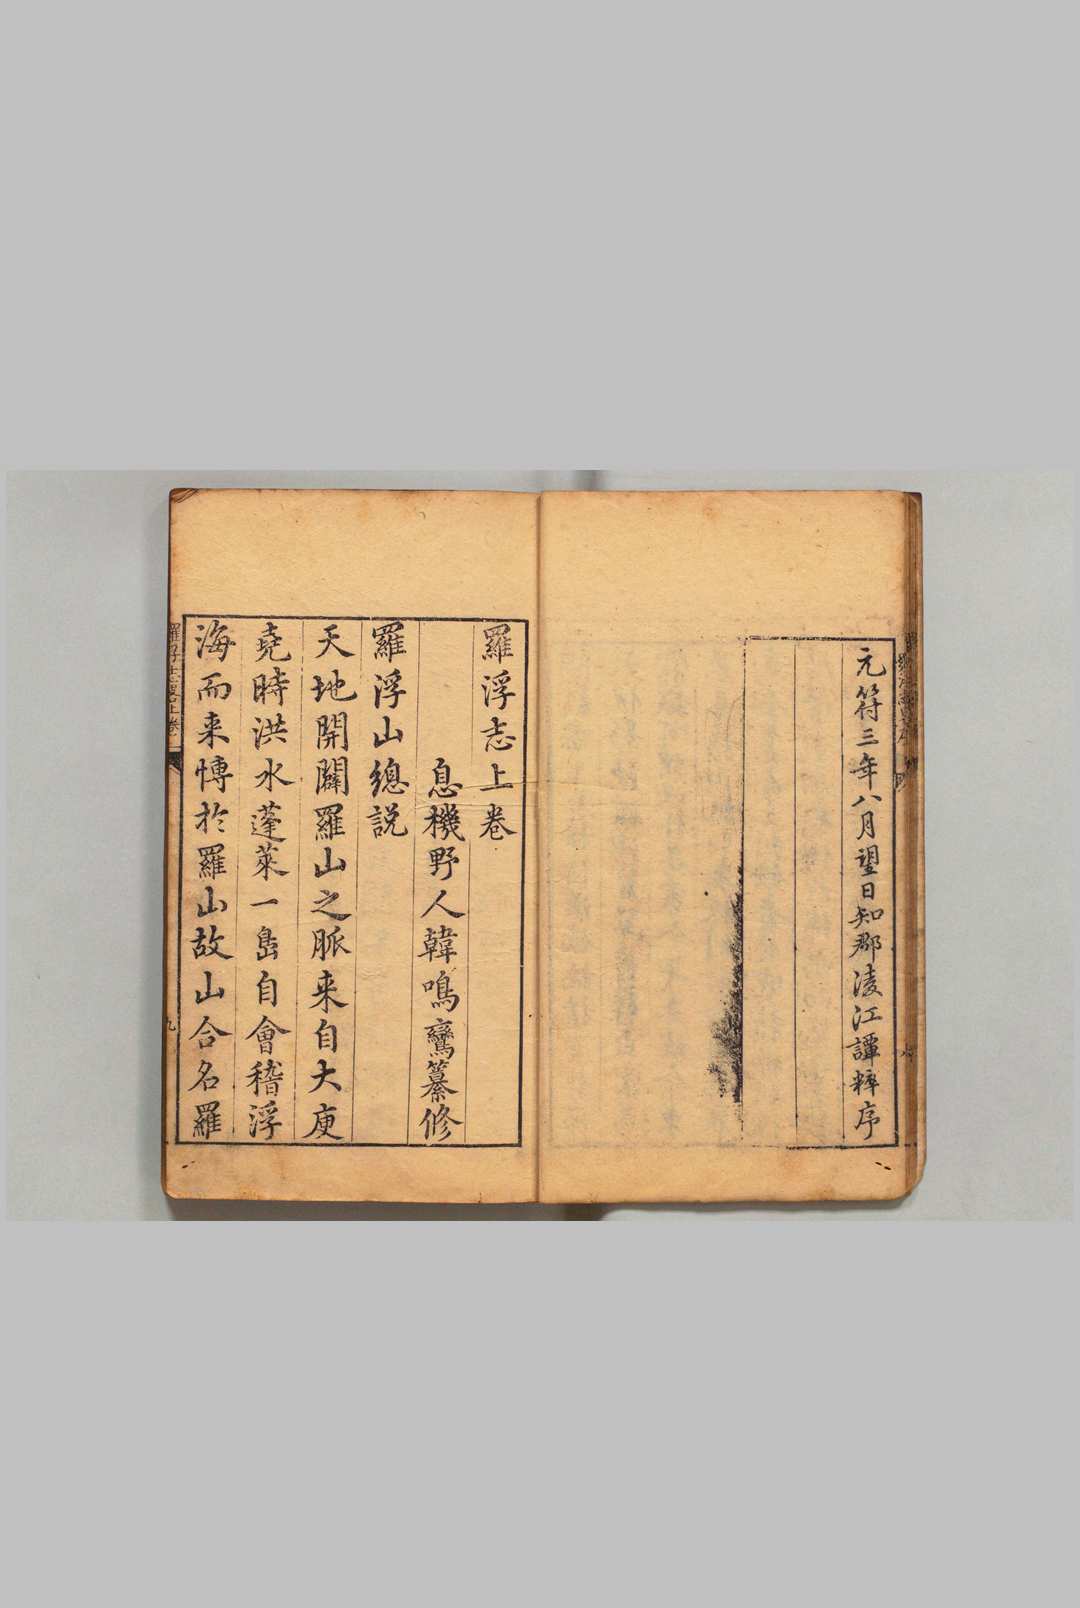 元符三年八月望日知郡淩江譚粹序
羅浮志上卷
息機野人韓鳴鸞纂修
羅浮山總説
天地開闢羅山之脈来自大庾
堯時洪水蓬萊一島自會稽浮
海而来愽於羅山故山合名羅
九